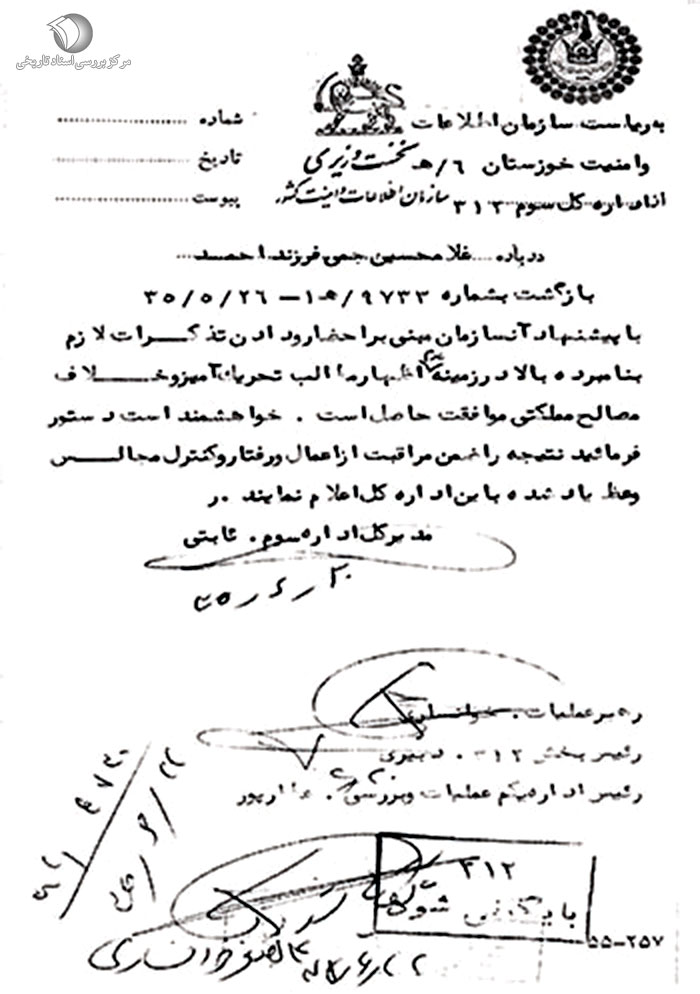 مرکز بررسی اسناد تاریخی
به ریاست سازمان اطلاعات
و امنیت خوزستان ۶/هـ
از اداره کل سوم ۳۱۲
نخست وزیری
سازمان اطلاعات و امنیت کشور
شماره
تاریخ
پیوست
درباره غلامحسین جمی فرزند احمد
بازگشت بشماره ۹۷۳۳/هـ۱ــ ۳۵/۵/۲۶
با پیشنهاد آنسازمان مبنی بر احضار و دادن تذکرات لازم
بنامبرده بالا در زمینه اظهار مطالب تحریک آمیز و خلاف
مصالح مملکتی موافقت حاصل است . خواهشمند است دستور
فرمائید نتیجه را ضمن مراقبت از اعمال و رفتار و کنترل مجالس
وعظ یاد شده باین اداره کل اعلام نمایند . ر
مدیرکل اداره سوم . ثابتی
رهبر عملیات . خوانساری
رئیس بخش ۳۱۲ . دبیری
رئیس اداره یکم عملیات و بررسی . عطارپور
۳۱۲
بایگانی شود
۵۵-۲۵۷